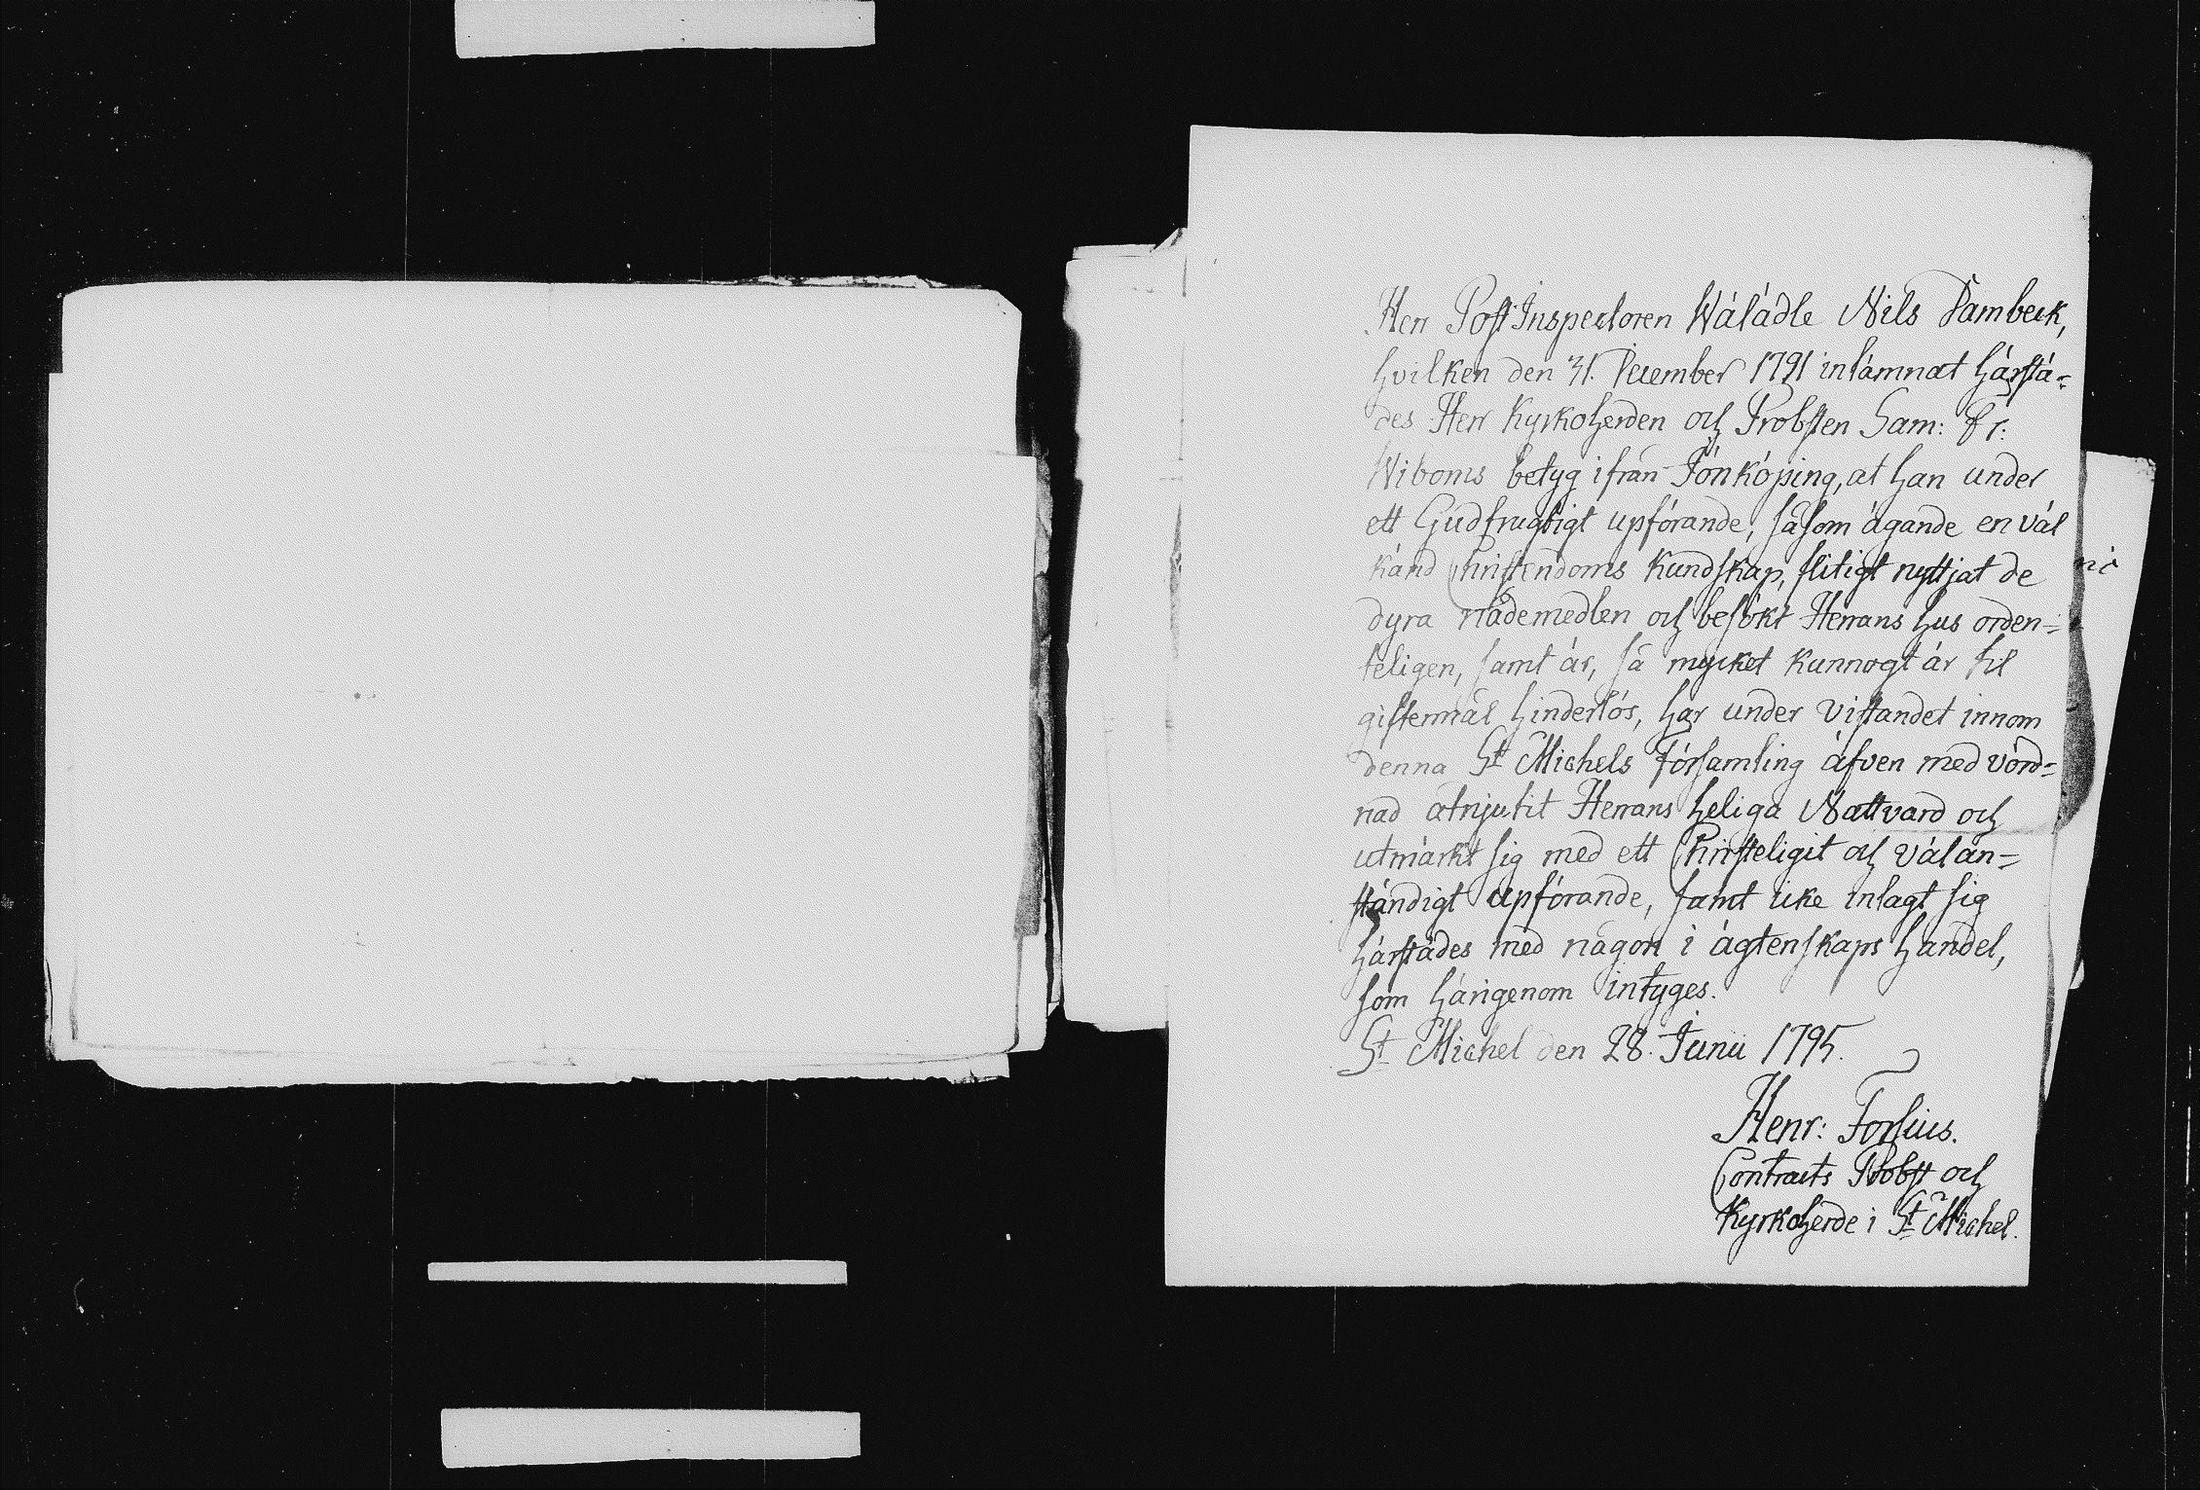 Herr Post Inspectoren Wälädle Nils Dambeck,
hvilken den 31. December 1791 inlämnat härstä=
des Herr Kyrkoherden och Probsten Sam: Fr:
Wiboms betyg ifrån Jönköping, at han under
ett Gudfrugtigt upförande, såsom ägande en väl
känd Christendoms Kundskap, flitigt nyttjat de
dyra nådemedlen och besökt Herrans hus orden=
teligen, samt är, så mycket kunnogt är til
giftermål hinderlös, har under vistandet innom
denna St Michels Församling äfven med vörd=
nad åtnjutit Herrans heliga Nattvard och
utmärkt sig med ett Christeligit och välan=
ständigt upförande, samt icke inlagt sig
härstädes med någon i ägtenskaps handel,
som härigenom intyges.
St Michel den 28. Junii 1795.
Henr: Forsius.
Contracts Probst och
Kyrkoherde i St Michel.